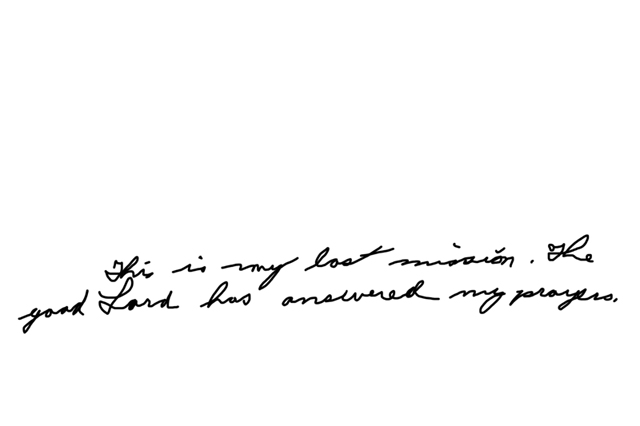 This is my last mission. The
good Lord has answered my prayers.